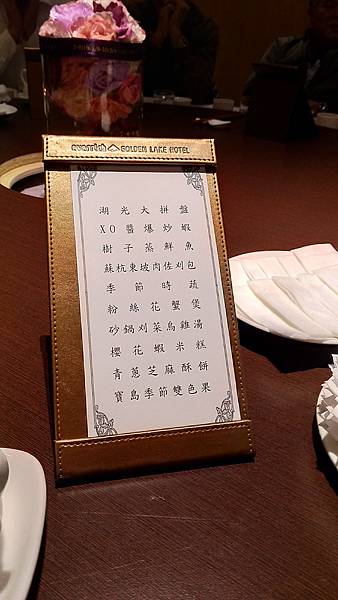 GOLDEN LAKE HOTEL
湖光大拼盤
XO醬爆炒蝦
樹子蒸鮮魚
蘇杭東坡肉佐刈包
季節時蔬
粉絲花蟹煲
砂鍋刈菜烏雞湯
櫻花蝦米糕
青蔥芝麻酥餅
寶島季節雙色果